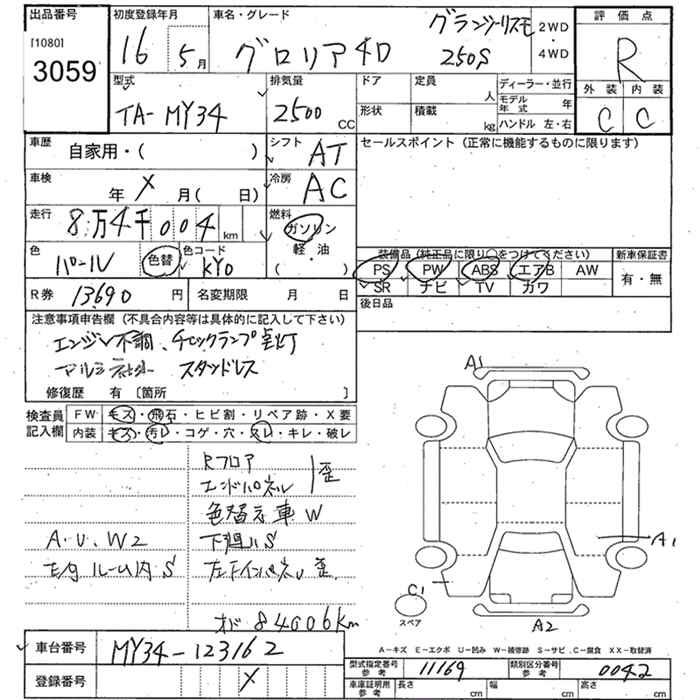 出品番号 初度登録年月 車名・グレード グランツーリスモ 2WD・4WD 評価点
[1080]
3059 16 5月 グロリア 4D 250S R
型式 排気量 ドア 定員 人 ディーラー・並行 外装 内装
TA-MY34 2500 CC 形状 積載 kg モデル年式 年 C C
ハンドル 左・右
車歴 自家用・( ) シフト AT セールスポイント (正常に機能するものに限ります)
車検 年 X 月 ( 日) 冷房 AC
走行 8万4千004 km 燃料 ガソリン
軽・油
( )
色 パール 色替 色コード KY0 装備品 (純正品に限り○をつけてください) 新車保証書
PS PW ABS エアB AW 有・無
SR ナビ TV カワ
R券 13690 円 名変期限 月 日 後日品
注意事項申告欄 (不具合内容等は具体的に記入して下さい)
エンジン不調、チェックランプ点灯
スタッドレス
修復歴 有 [箇所 ]
検査員記入欄 FW キズ・飛石・ヒビ割・リペア跡・X要
内装 キズ・汚レ・コゲ・穴・スレ・キレ・破レ
Rフロア
エンドパネル 歪
色替え車 W
A・U、W2 下廻りS
ルーム内 S 左下インパネU 歪
84006km
A1
A1
C1
スペア
A2
A-キズ E-エクボ U-凹み W-補修跡 S-サビ C-腐食 XX-取替済
車台番号 MY34-123162
型式指定番号 参考 11169 類別区分番号 参考 0042
登録番号 X 車庫証明用 参考 長さ cm 幅 cm 高さ cm